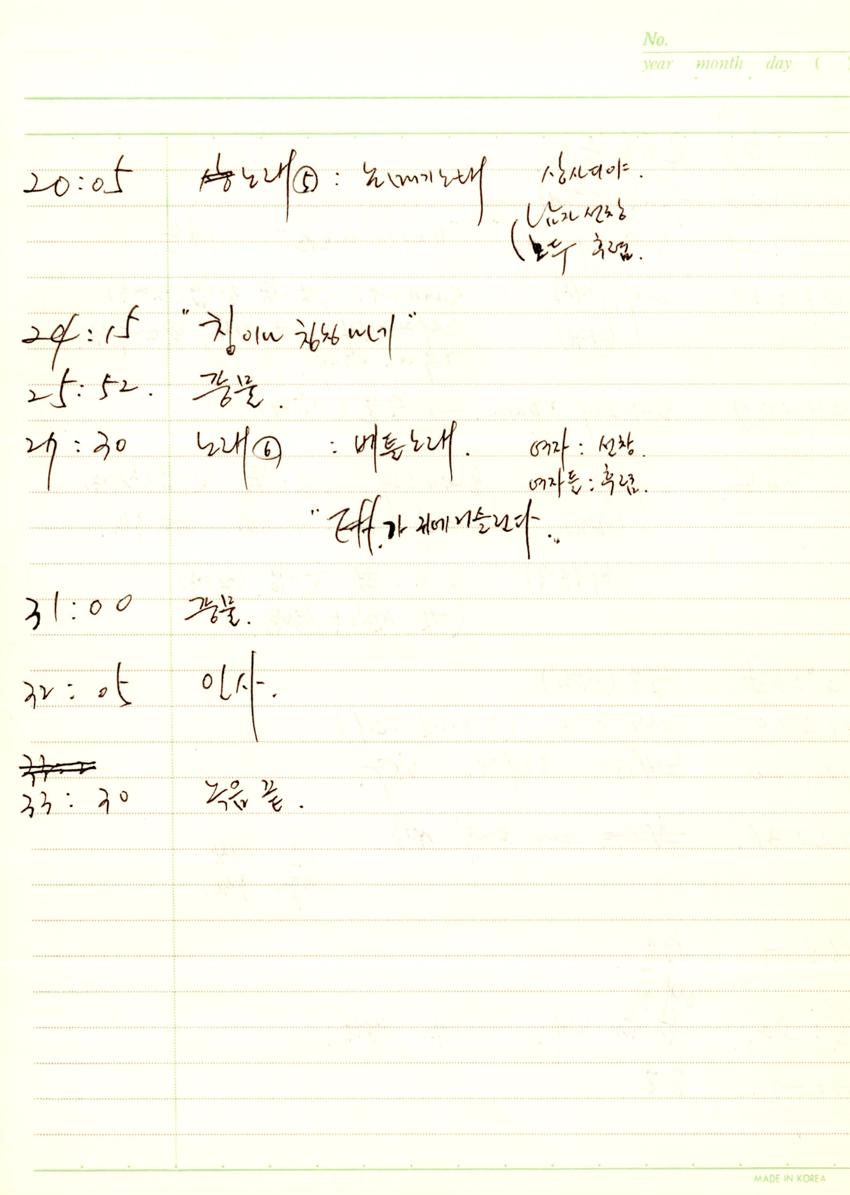 No.
year month day ( )
20:05 노래⑤ : 논매기노래 상사디야.
남자 선창
모두 후렴.
24:15 "칭이나 칭칭나네"
25:52. 풍물.
27:30 노래⑥ : 베틀노래. 여자 : 선창.
여자들 : 후렴.
31:00 풍물.
32:05 인사.
33:30 녹음 끝.
MADE IN KOREA